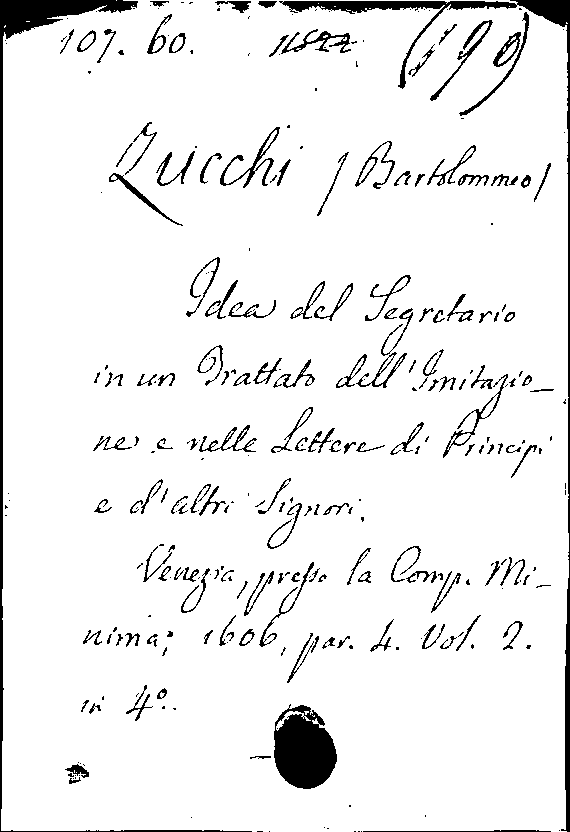 107. 60. (190)
Zucchi / Bartolommeo /
Idea del Segretario
in un Trattato dell'Imitazio-
ne e nelle Lettere di Principi
e d'altri Signori.
Venezia, presso la Comp. Mi-
nima; 1606, par. 4. Vol. 2.
in 4º.